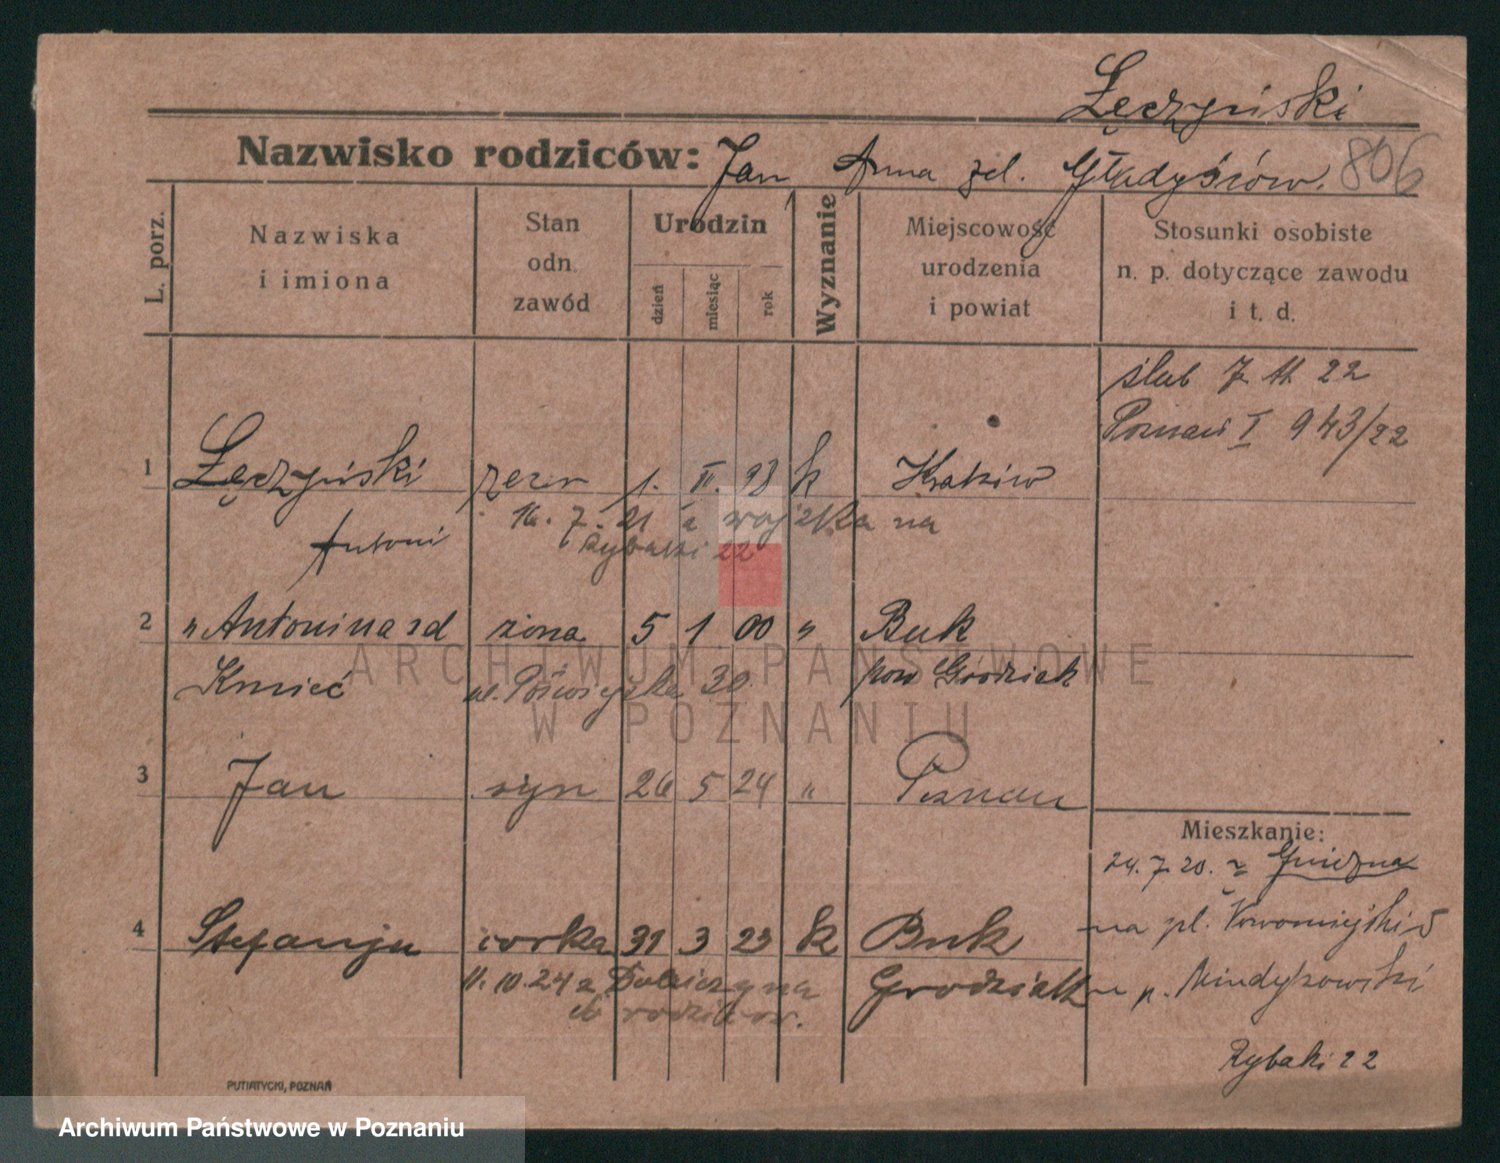 Łęczyński
Nazwisko rodziców: Jan, Anna zd. Gładyśzów. 806
L. porz.
Nazwiska i imiona
Stan odn. zawód
Urodzin
dzień miesiąc rok
Wyznanie
Miejscowość urodzenia i powiat
Stosunki osobiste n. p. dotyczące zawodu i t. d.
ślub 7 11 22
Poznań I 943/22
1 Łęczyński rezer 1. II. 98 k Kraków
16. 7. 21 z wojska na
Antoni Rybaki 22
2 " Antonina zd żona 5 1 00 " Buk
Kmieć ul. Półwiejska 30. pow Grodzisk
ARCHIWUM PAŃSTWOWE
W POZNANIU
3 Jan syn 26 5 24 " Poznań
Mieszkanie:
24. 7. 20. z Gniezna
na pl. Nowomiejski 5
4 Stefanja córka 31 3 23 k Buk
11. 10. 24 z Grodzisk
do rodziców.
Rybaki 22
PUTIATYCKI, POZNAŃ
Archiwum Państwowe w Poznaniu